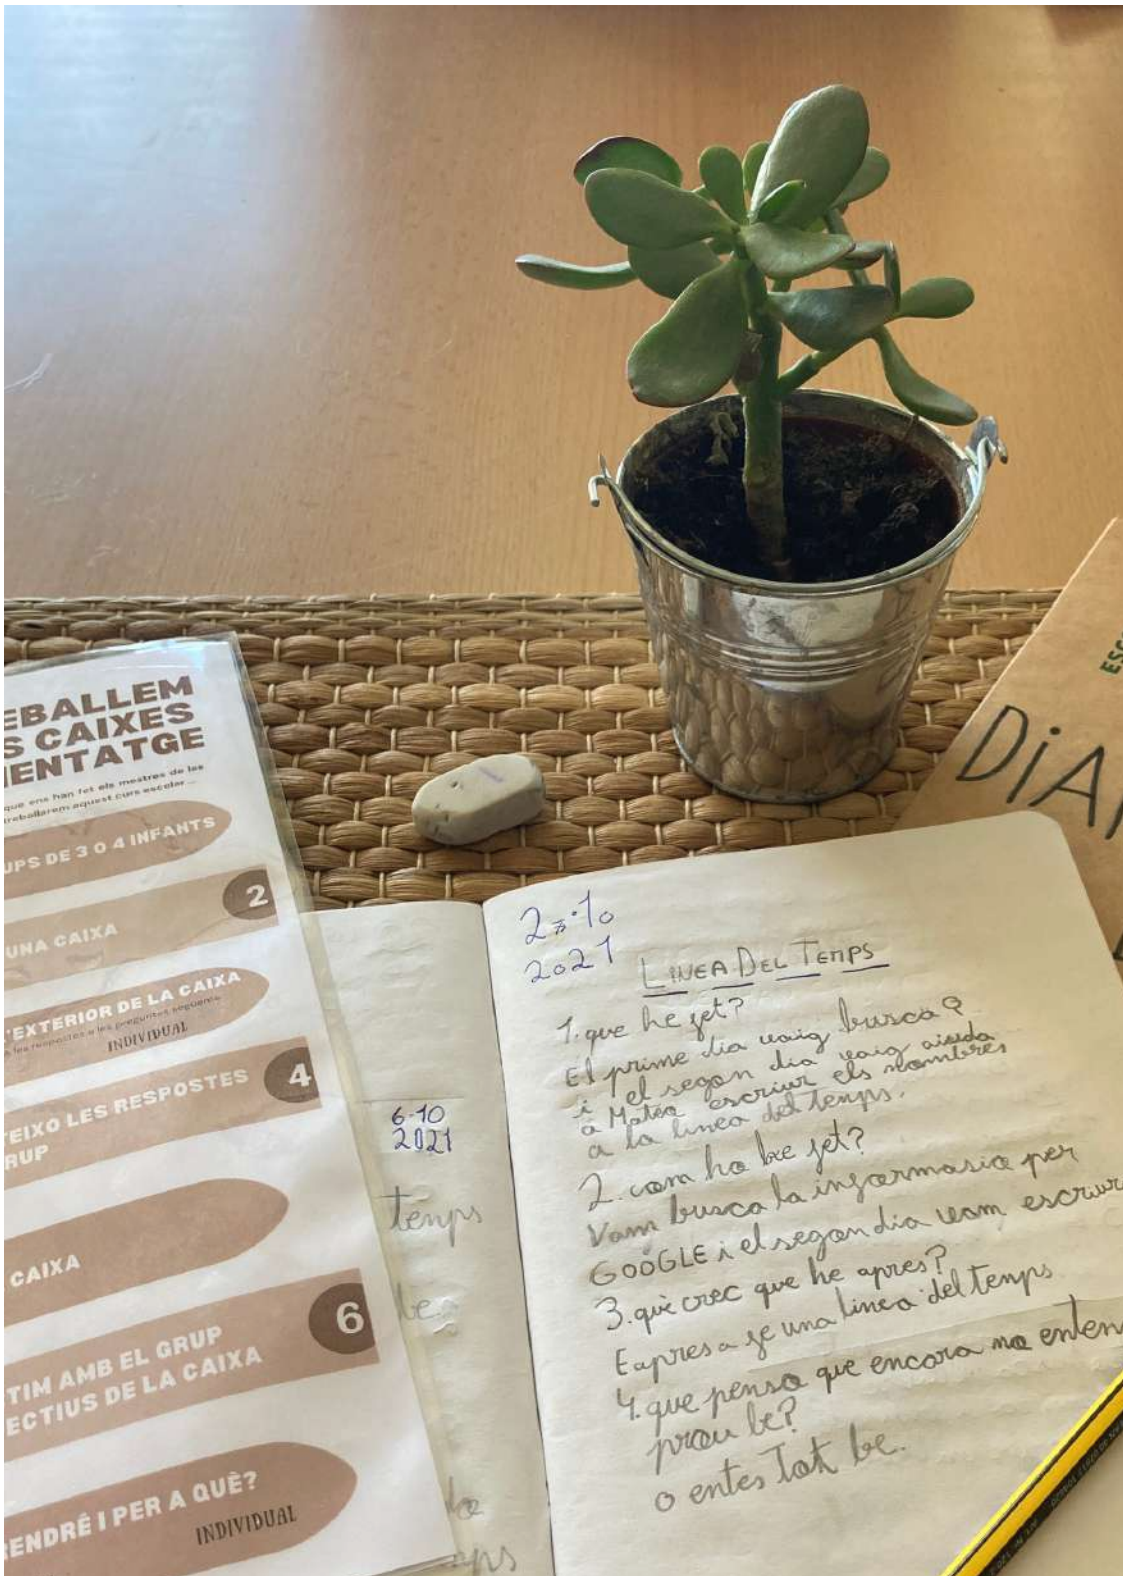 EBALLEM
S CAIXES
ENTATGE
que ens han fet els mestres de les
treballarem aquest curs escolar ...
UPS DE 3 O 4 INFANTS
2
UNA CAIXA
'EXTERIOR DE LA CAIXA
les respostes a les preguntes següents
INDIVIDUAL
4
EIXO LES RESPOSTES
RUP
CAIXA
6
TIM AMB EL GRUP
ECTIUS DE LA CAIXA
ENDRÉ I PER A QUÈ?
INDIVIDUAL
6-10
2021
temps
be
27·10
2021
LINEA DEL TEMPS
1. que he fet?
El prime dia vaig busca
i el segon dia vaig aiuda
a Mateo escriur els nombres
a la linea del temps.
2. com ho he fet?
Vam busca la informasio per
GOOGLE i el segon dia vam escriur
3. què crec que he apres?
E apres a fe una linea del temps
4. que penso que encara no enten
prou be?
o entes Tot be.
ESC
DIA